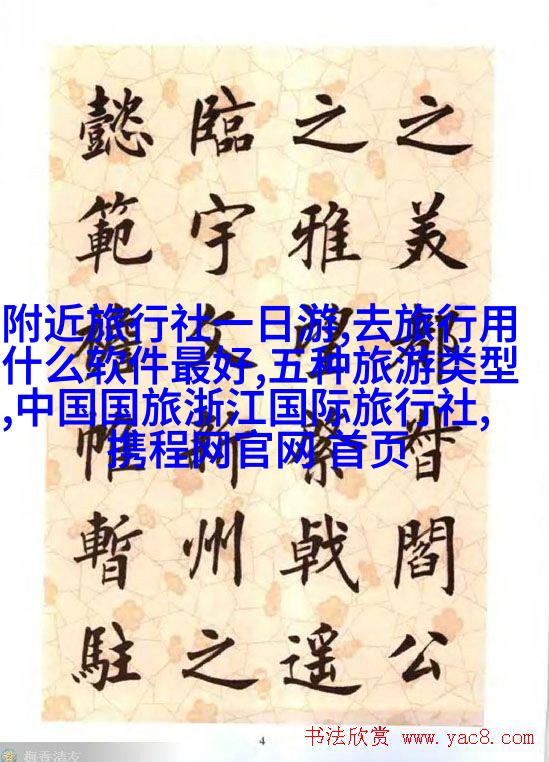 之美都督閻公
之雅望棨戟遥
臨宇文新州之
懿範襜帷暫駐
附近旅行社一日游,去旅行用
什么软件最好,五种旅游类型
,中国国旅浙江国际旅行社,
携程网官网 首页
4
书法欣赏 www.yac8.com
梅香清友